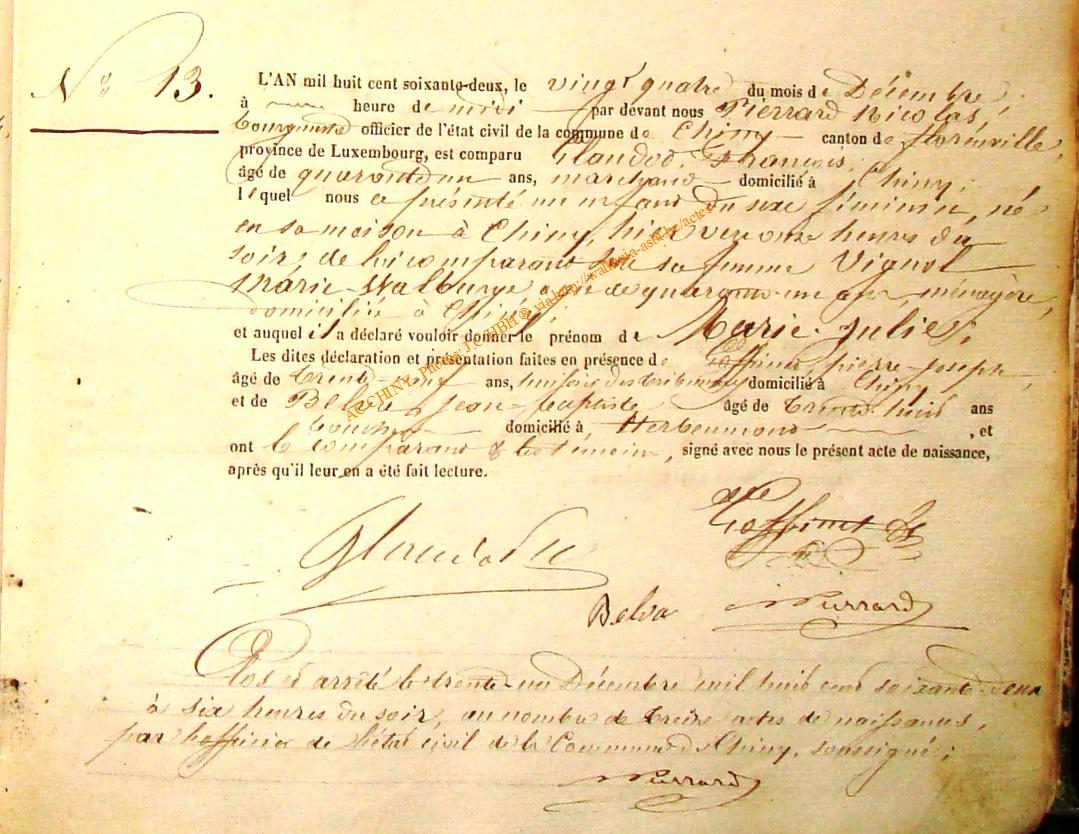 N° 13.
L'AN mil huit cent soixante-deux, le vingt quatre du mois de Décembre,
à heure de midi par devant nous Pierrard Nicolas,
bourgmestre officier de l'état civil de la commune de Chiny canton de florenville,
province de Luxembourg, est comparu Claudot, François,
âgé de quarante un ans, marchand domicilié à Chiny;
lequel nous a présenté un enfant du sexe féminin, né
en sa maison à Chiny, hier vers onze heures du
soir, de lui comparant et de sa femme Vignol
Marie-Walburge agée de quarante-un ans, ménagère,
domiciliée à Chiny,
et auquel il a déclaré vouloir donner le prénom de Marie-Julie;
Les dites déclaration et présentation faites en présence de Goffinet, pierre-joseph,
âgé de trente-neuf ans, huissier des tribunaux domicilié à Chiny
et de Belva, Jean-baptiste âgé de trente huit ans
domicilié à Herbeumont, et
ont le comparant & les témoins, signé avec nous le présent acte de naissance,
après qu'il leur en a été fait lecture.
Goffinet
Belva NPierrard
Clos et arrêté le trente-un Décembre mil huit cent soixante-deux
à six heures du soir, au nombre de treize actes de naissances,
par l'officier de l'état civil de la Commune de Chiny, soussigné;
NPierrard
ACCHINY Photos J.C. HBH © via http://wallonia-asbl.be/actes